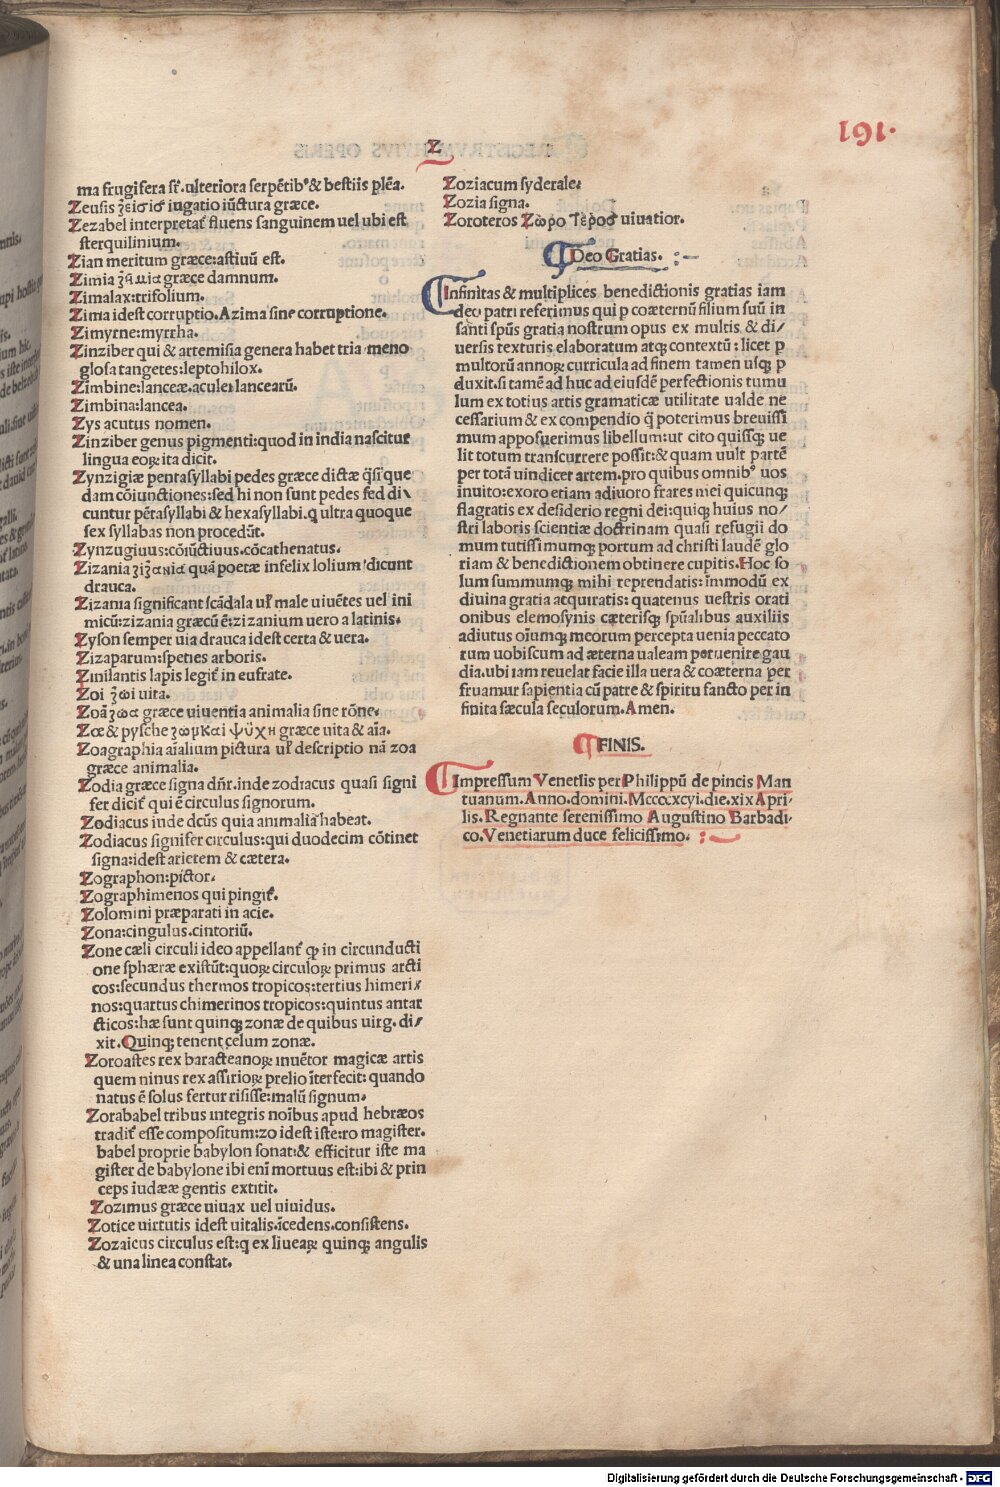 191.
Z
ma frugifera st̄. ulteriora serpētibꝰ & bestiis plēa.
Zeusis ȝεισισ iugatio iūctura græce.
Zezabel interpretat᷑ fluens sanguinem uel ubi est
sterquilinium.
Zian meritum græce: astiuū est.
Zimia græce damnum.
Zimalax: trifolium.
Zima idest corruptio. Azima sine corruptione.
Zimyrne: myrrha.
Zinziber qui & artemisia genera habet tria meno
glosa tangetes: leptohilox.
Zimbine: lanceæ. aculei lancearū.
Zimbina: lancea.
Zys acutus nomen.
Zinziber genus pigmenti: quod in india nascitur
lingua eoꝝ ita dicit.
Zynzigiæ pentasyllabi pedes græce dictæ q̄si que
dam cōiunctiones: sed hi non sunt pedes sed di\
cuntur pētasyllabi & hexasyllabi. q ultra quoque
sex syllabas non procedūt.
Zynzugiuus: cōiūctiuus. cōcathenatus.
Zizania ȝiȝανια quā poetæ infelix lolium dicunt
drauca.
Zizania significant scādala ul᷑ male uiuētes uel ini
micū: zizania græcū ē: zizanium uero a latinis.
Zyson semper uia drauca idest certa & uera.
Zizaparum: speties arboris.
Zmilantis lapis legit᷑ in eufrate.
Zoi ȝωi uita.
Zoā ȝωα græce uiuentia animalia sine rōne.
Zœ & pysche ȝωμκαi ψϋχн græce uita & aīa.
Zoagraphia aīalium pictura ul᷑ descriptio nā zoa
græce animalia.
Zodia græce signa dn̄r. inde zodiacus quasi signi
fer dicit᷑ qui ē circulus signorum.
Zodiacus inde dc̄us quia animalia habeat.
Zodiacus signifer circulus: qui duodecim cōtinet
signa: idest arietem & cætera.
Zographon: pictor.
Zographimenos qui pingit᷑.
Zolomini præparati in acie.
Zona: cingulus. cintoriū.
Zone cæli circuli ideo appellant᷑ ꝙ in circunducti
one sphæræ existūt: quoꝝ circuloꝝ primus arcti
cos: secundus thermos tropicos: tertius himeri/
nos: quartus chimerinos tropicos: quintus antar
cticos: hæ sunt quinqꝫ zonæ de quibus uirg. di/
xit. Quinqꝫ tenent celum zonæ.
Zoroastes rex baracteanoꝝ inuētor magicæ artis
quem ninus rex assirioꝝ prelio īterfecit: quando
natus ē solus fertur risisse: malū signum.
Zorababel tribus integris noībus apud hebræos
tradit᷑ esse compositum: zo idest iste: ro magister.
babel proprie babylon sonat: & efficitur iste ma
gister de babylone ibi enī mortuus est: ibi & prin
ceps iudææ gentis extitit.
Zozimus græce uiuax uel uiuidus.
Zotice uirtutis idest uitalis. īcedens. consistens.
Zozaicus circulus est: q ex liueaꝝ quinqꝫ angulis
& una linea constat.
Zoziacum syderale.
Zozia signa.
Zoroteros Zωρο Τεροσ uiuatior.
Deo Gratias. :~
Infinitas & multiplices benedictionis gratias iam
deo patri referimus qui p coæternū filium suū in
sāti spūs gratia nostrum opus ex multis & di/
uersis texturis elaboratum atqꝫ contextū: licet p
multorū annoꝝ curricula ad finem tamen usqꝫ p
duxit. si tamē ad huc ad eiusdē perfectionis tumu
lum ex totius artis gramaticæ utilitate ualde ne
cessarium & ex compendio q̄ poterimus breuissi
mum apposuerimus libellum: ut cito quissqꝫ ue
lit totum transcurrere possit: & quam uult partē
per totā uindicet artem. pro quibus omnibꝰ uos
inuito: exoro etiam adiuoro frares mei quicunqꝫ
flagratis ex desiderio regni dei: quiqꝫ huius no/
stri laboris scientiæ doctrinam quasi refugii do
mum tutissimumqꝫ portum ad christi laudē glo
riam & benedictionem obtinere cupitis. Hoc so
lum summumqꝫ mihi reprendatis: īmmodū ex
diuina gratia atquiratis: quatenus uestris orati
onibus elemosynis cæterisqꝫ spūalibus auxiliis
adiutus oīumqꝫ meorum percepta uenia peccato
rum uobiscum ad æterna ualeam peruenire gau
dia. ubi iam reuelat facie illa uera & coæterna per
fruamur sapientia cū patre & spiritu sancto per in
finita sæcula seculorum. Amen.
FINIS.
Impressum Venetiis per Philippū de pincis Man
tuanum. Anno. domini. Mccccxcyi. die. xix Apri-
lis. Regnante serenissimo Augustino Barbadi-
co. Venetiarum duce felicissimo. :~
Digitalisierung gefördert durch die Deutsche Forschungsgemeinschaft - DFG